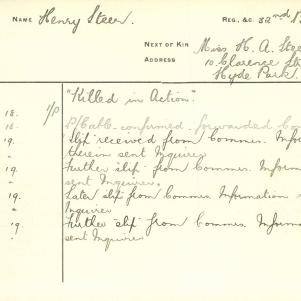 NAME Henry Steer. REG. &C. 32nd
NEXT OF KIN Miss H. A. Stee
ADDRESS 10 Clarence St
Hyde Park.
"Killed in Action."
18. 1/P
16. P/Cable confirmed forwarded
19. Slip received from Commrs. Inform
therein sent Inquirer
19. Further slip from Commrs. Informa
sent Inquirer.
19. Later slip from Commrs Information
" Inquirer
19 Further "slip" from Commrs. Informa
" sent Inquirer